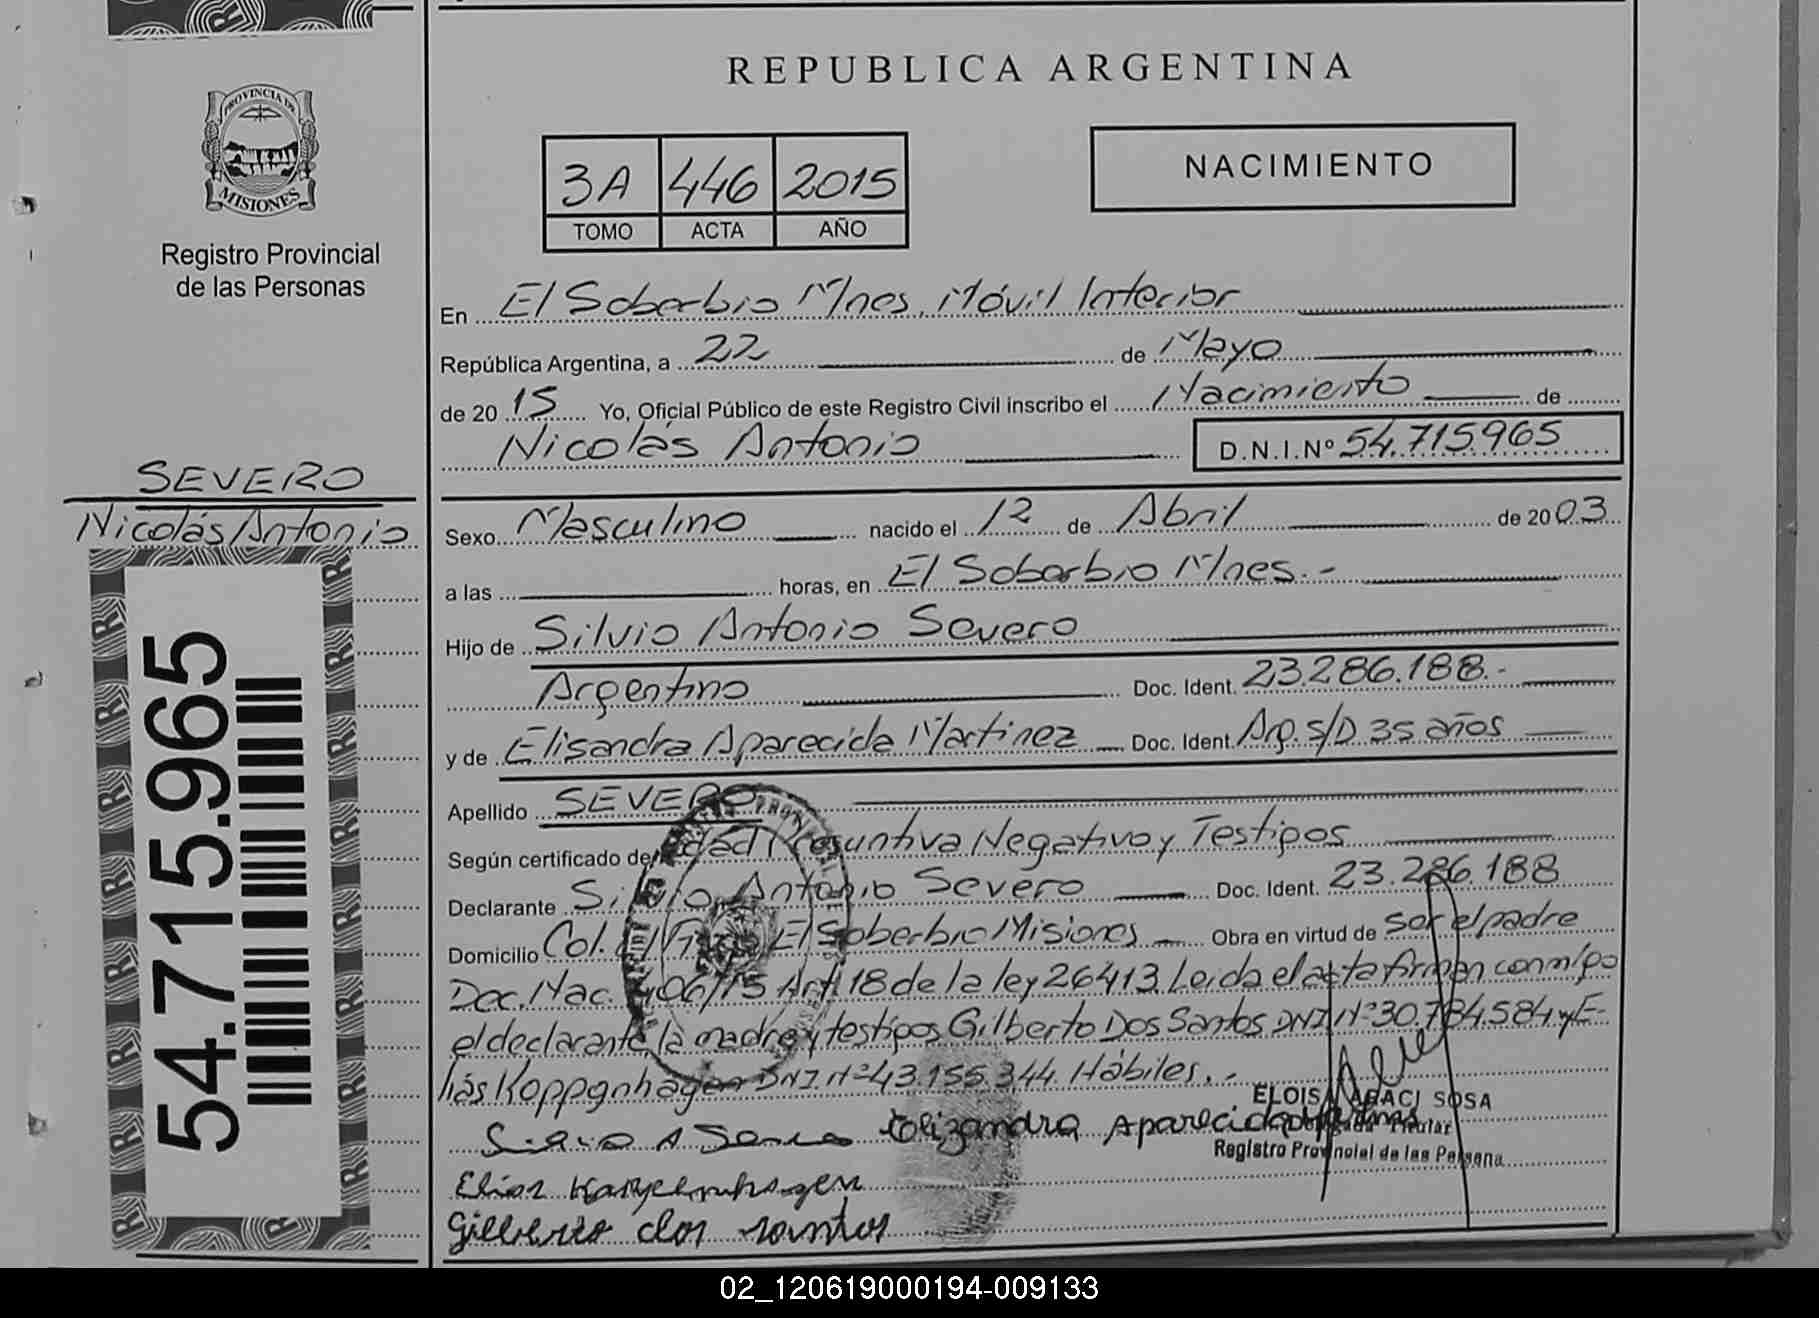 REPUBLICA ARGENTINA
PROVINCIA DE
MISIONES
Registro Provincial
de las Personas
3A 446 2015
TOMO ACTA AÑO
NACIMIENTO
En El Soberbio Mnes. Móvil Interior
República Argentina, a 22 de Mayo
de 20 15 Yo, Oficial Público de este Registro Civil inscribo el Nacimiento de
Nicolás Antonio D.N.I.Nº 54.715965
SEVERO
Nicolás Antonio
54.715.965
Sexo Masculino nacido el 12 de Abril de 20 03
a las horas, en El Soberbio Mnes.-
Hijo de Silvio Antonio Severo
Argentino Doc. Ident. 23.286.188.-
y de Elisandra Aparecida Martinez Doc. Ident. Arg. S/D 35 años
Apellido SEVERO
Según certificado de edad Presuntiva Negativo y Testigos
Declarante Silvio Antonio Severo Doc. Ident. 23.286.188
Domicilio Col. El Soberbio Misiones Obra en virtud de ser el padre
Doc. Nac. 406/15 Art 18 de la ley 26413. Leida el acta firman conmigo
el declarante la madre y testigos Gilberto Dos Santos DNI Nº 30.784.584 y E-
lías Koppgnhagen DNI Nº 43.155.344. Hábiles.-
ELOISA ARACI SOSA
Elizandra Aparecida
Titular
Registro Provincial de las Persona
Elias
Gilberto dos santos
02_120619000194-009133